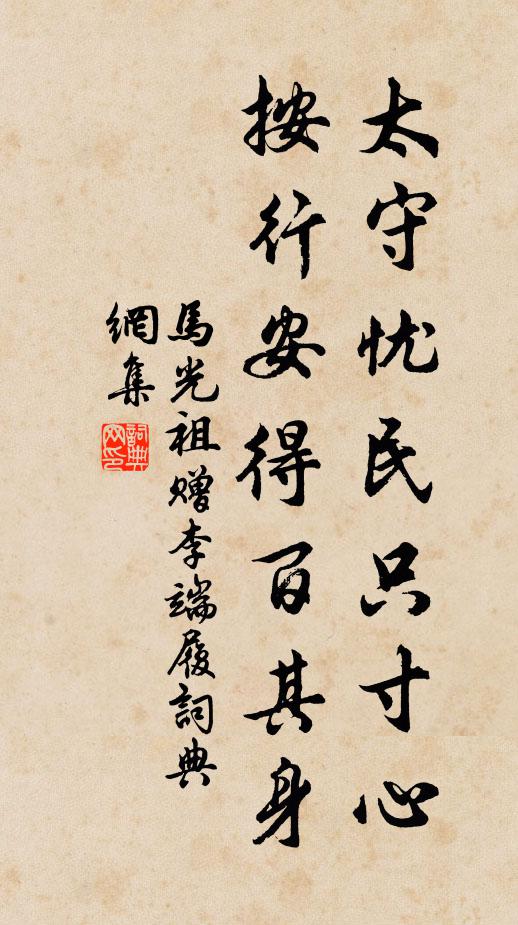 太守忧民只寸心
按行安得百其身
馬光祖赠李端履詞典
網集
詞典網印